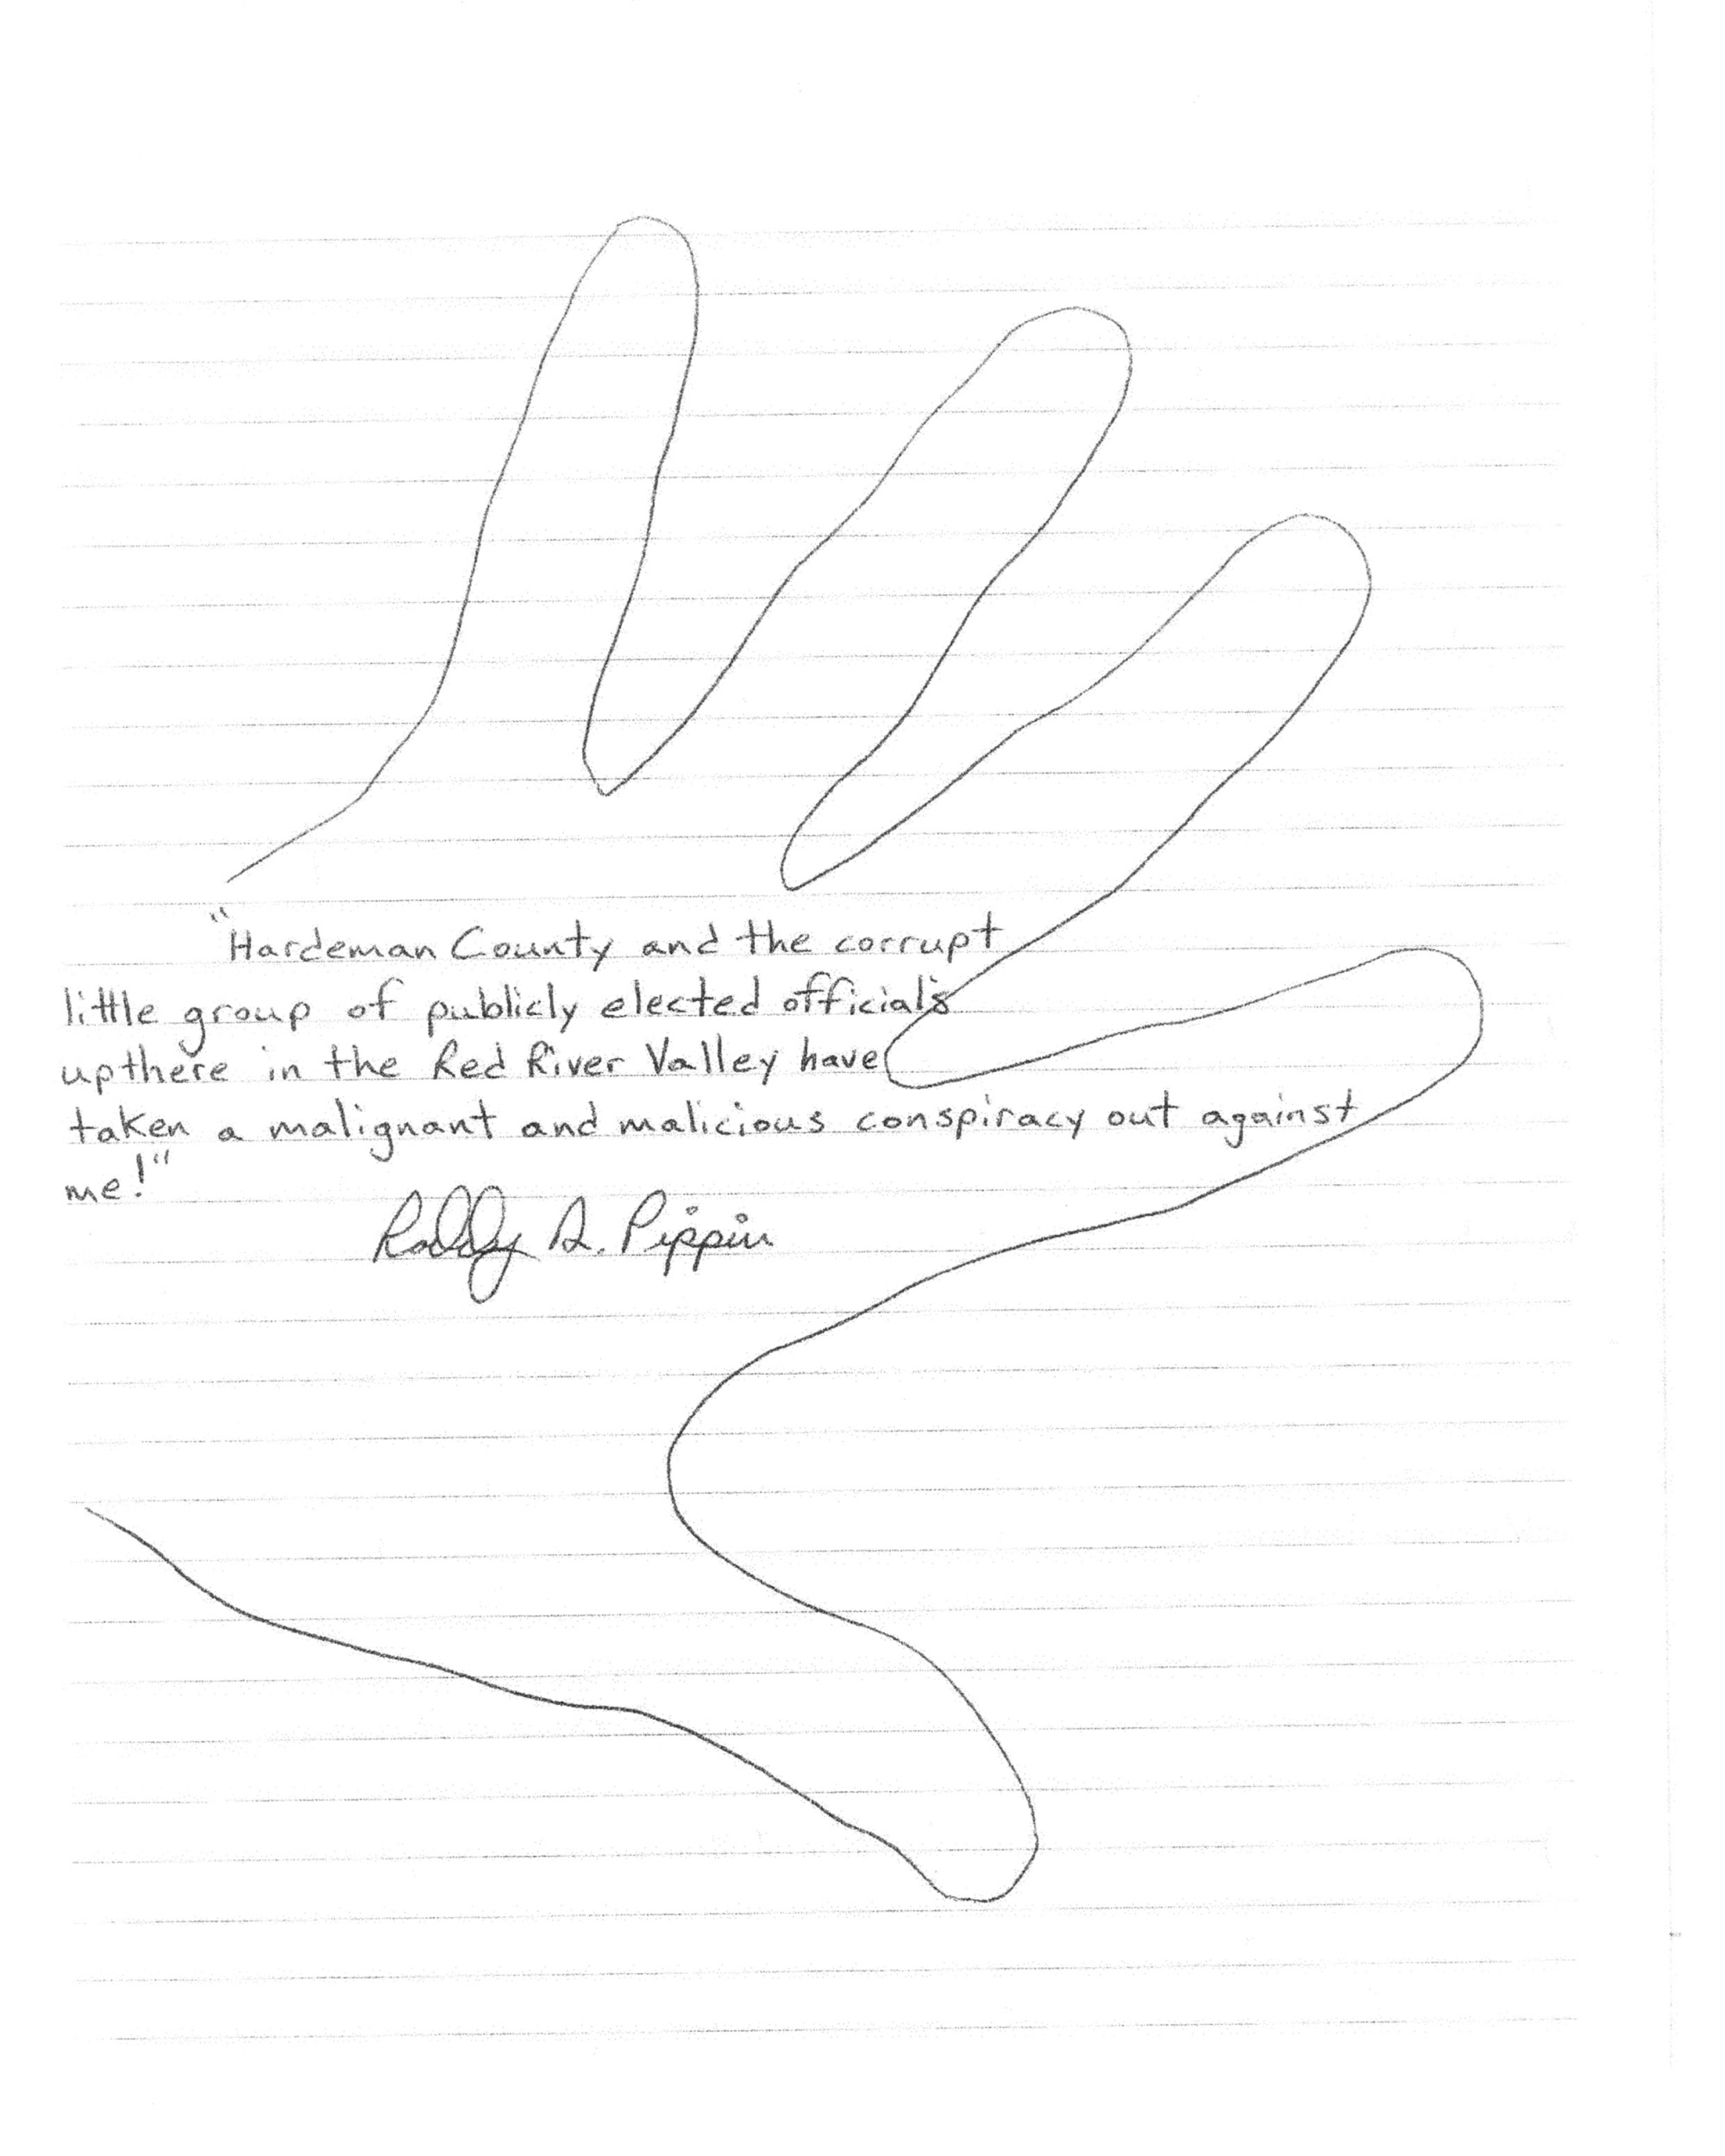 "Hardeman County and the corrupt
little group of publicly elected officials
upthere in the Red River Valley have
taken a malignant and malicious conspiracy out against
me!"
Roddy A. Pippin